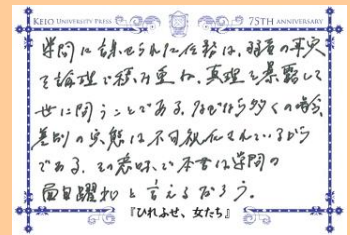 KEIO UNIVERSITY PRESS 75TH ANNIVERSARY
学問に課せられた任務は、弱者の事実
を論理で積み重ね、真理を暴露して
世に問うことである。なぜなら多くの場合、
差別の実態は不可視化されているから
である。その意味で本書は学問の
面目躍如と言えるだろう。
『ひれふせ、女たち』